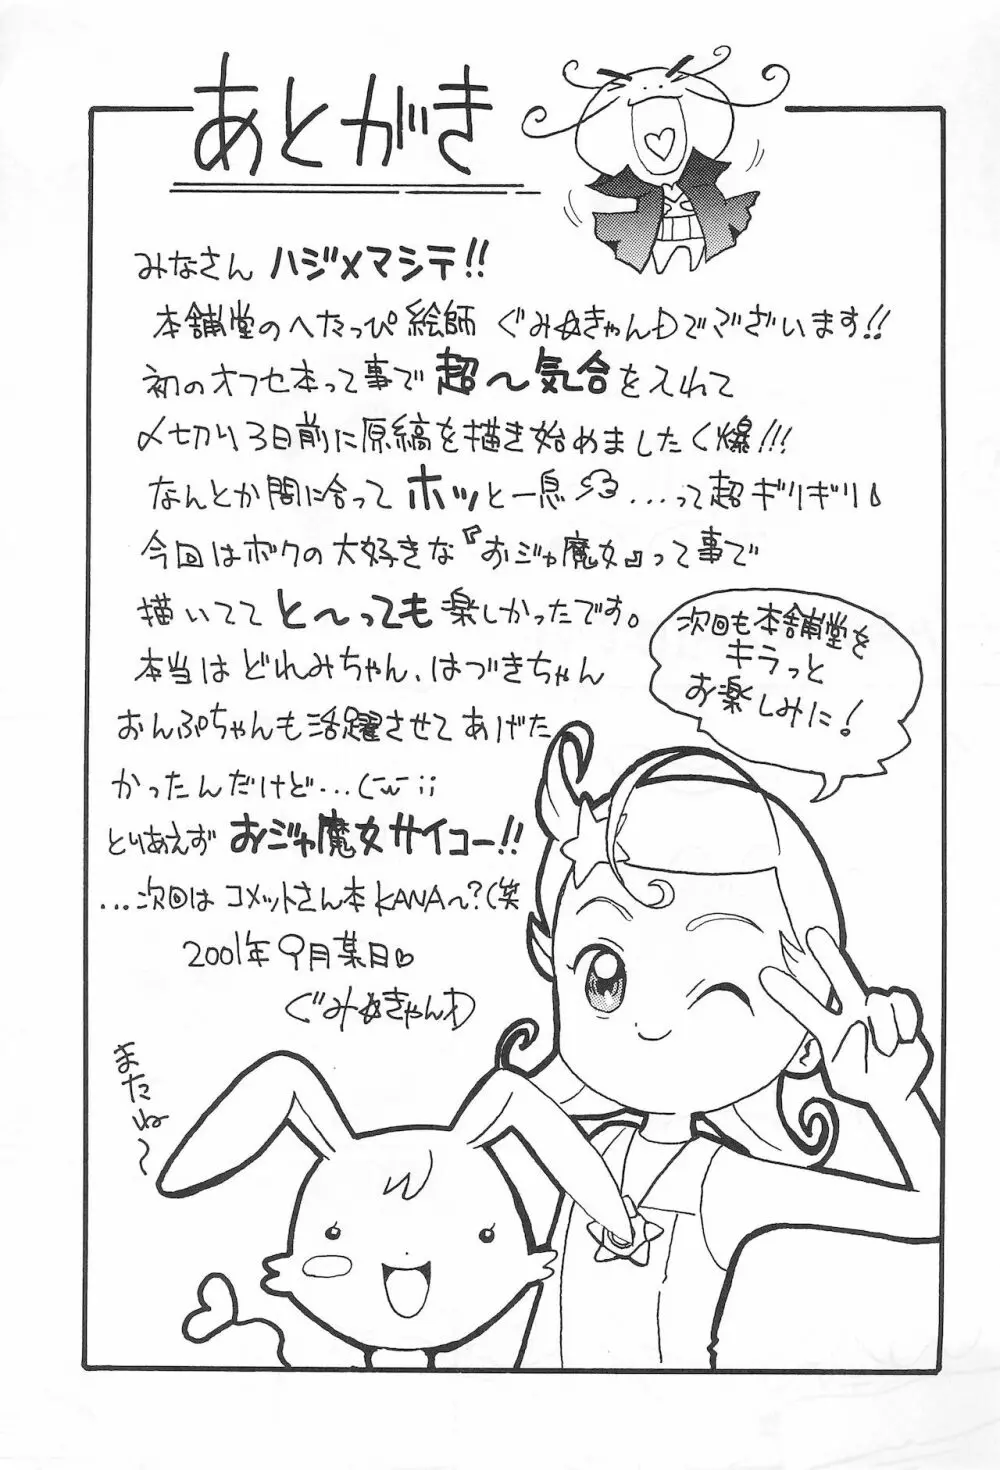 あとがき
みなさん ハジメマシテ!!
本舗堂のへたっぴ絵師 ぐみ☆きゃんDでございます!!
初のオフセ本って事で 超〜気合を入れて
〆切り3日前に原稿を描き始めましたく爆!!!
なんとか間に合って ホッと一息 ...って超ギリギリ
今回はボクの大好きな『おジャ魔女』って事で
描いてて と〜っても 楽しかったです。
本当は どれみちゃん、はづきちゃん
おんぷちゃんも活躍させてあげた
かったんだけど...(ーwー;;
とりあえず おジャ魔女サイコー!!
...次回は コメットさん本KANA〜?(笑
2001年9月某日♡
ぐみ☆きゃんD
次回も本舗堂を
キラっと
お楽しみに!
またね〜